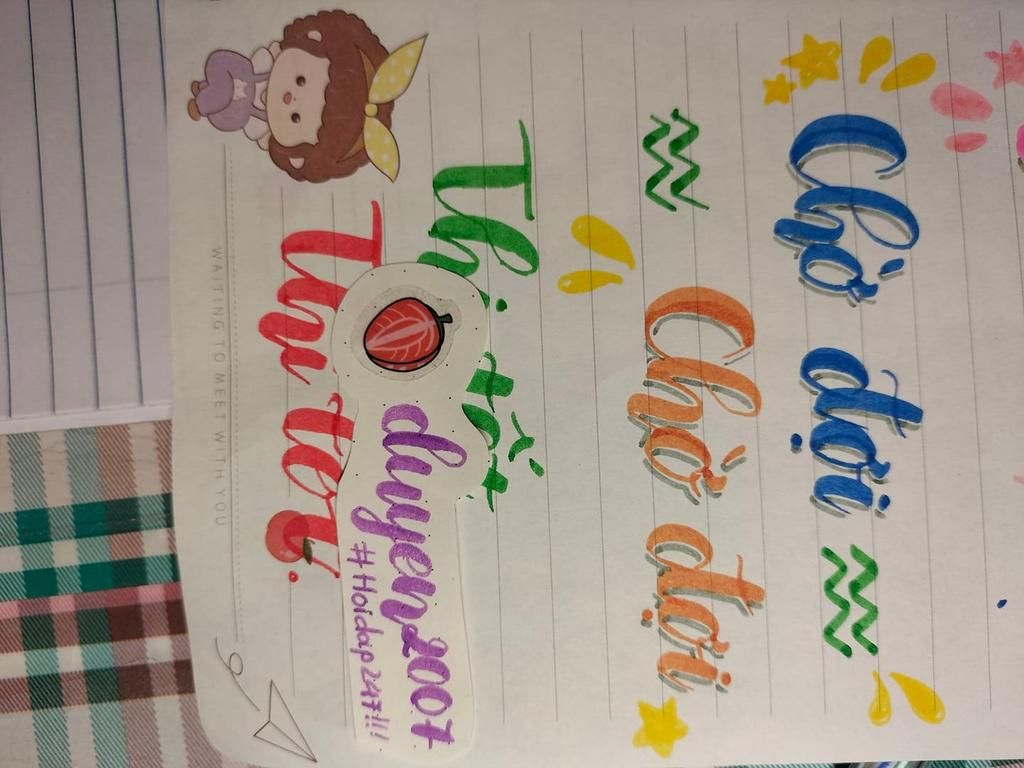 Chờ đợi
Chờ đợi
Thi tốt
duyen2007
#Hoidap247!!!
WAITING TO MEET WITH YOU